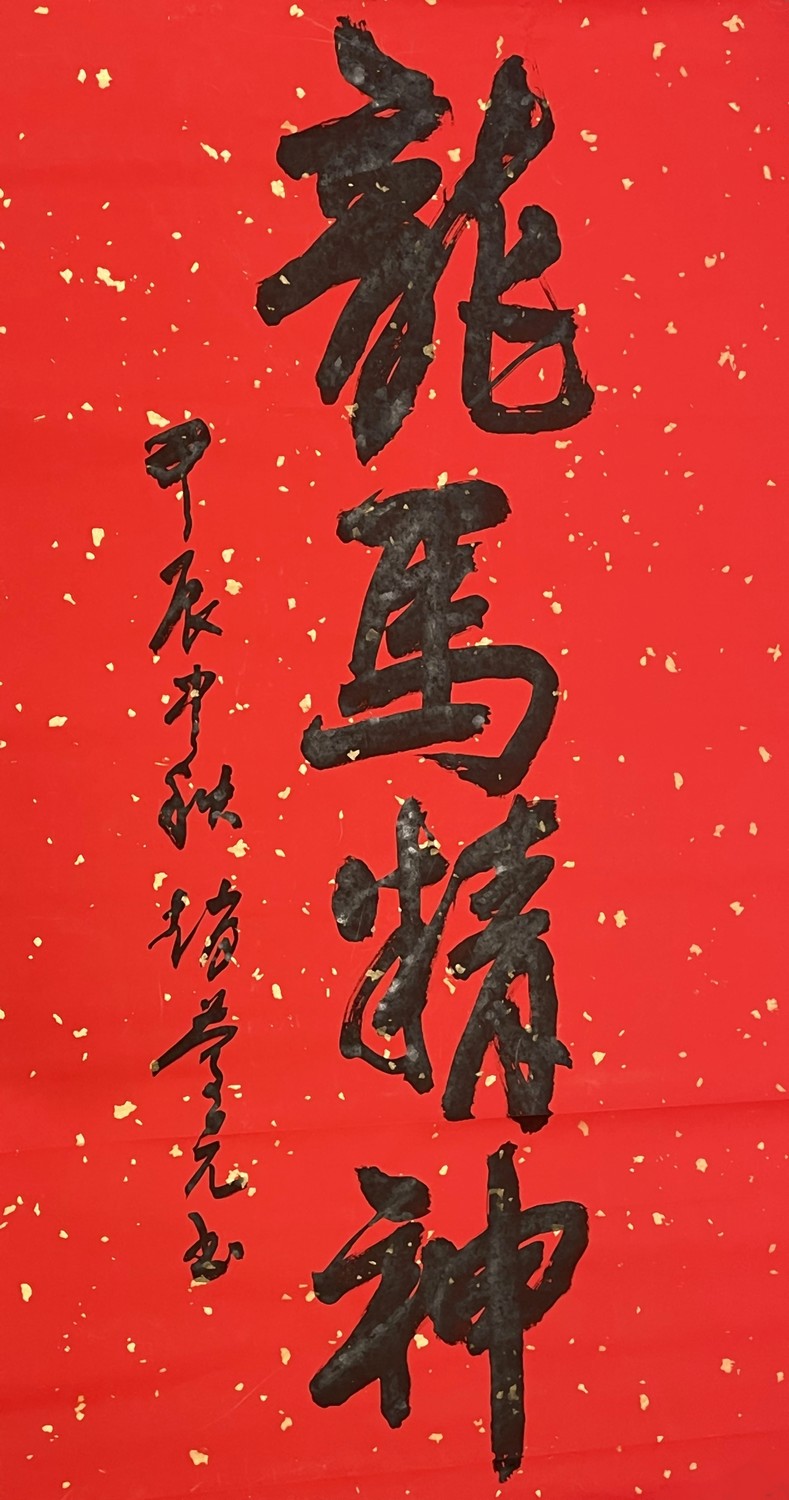 龍馬精神
甲辰中秋趙尊元书